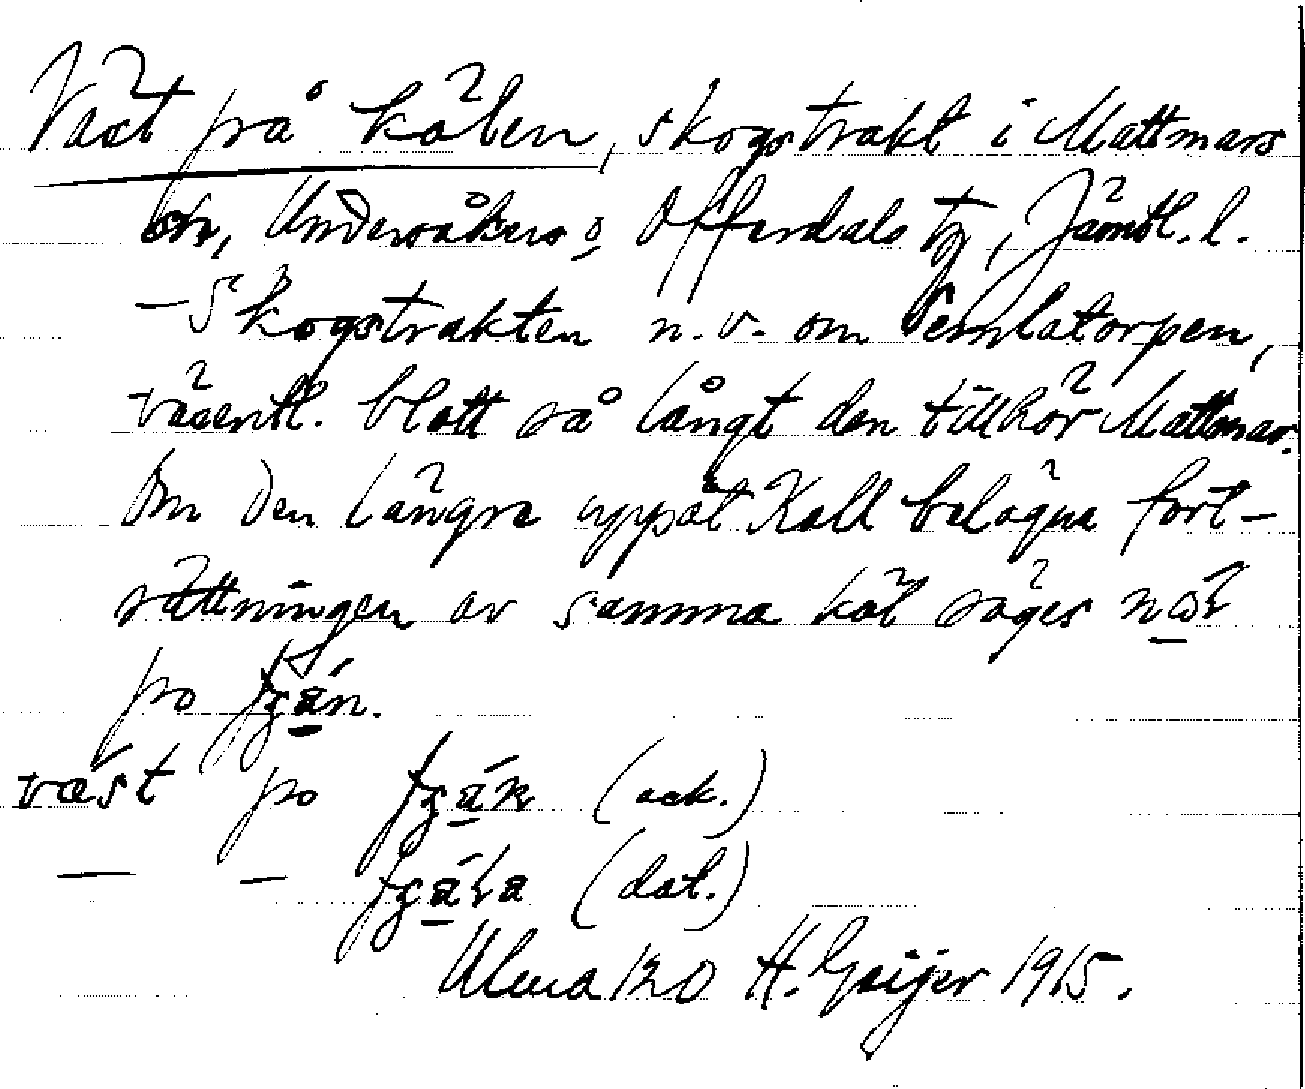 Väst på kölen, skogstrakt i Mattmars
sn, Undersåkers o Offerdals tg, Jämtl. l.
– Skogstrakten n.v. om Semlatorpen,
väsentl. blott så långt den tillhör Mattmar.
Om den längre uppåt Kall belägna fort-
sättningen av samma köl säges nol
po
væst po (ack.)
— – (dat.)
Ulma 120 H. Geijer 1915.